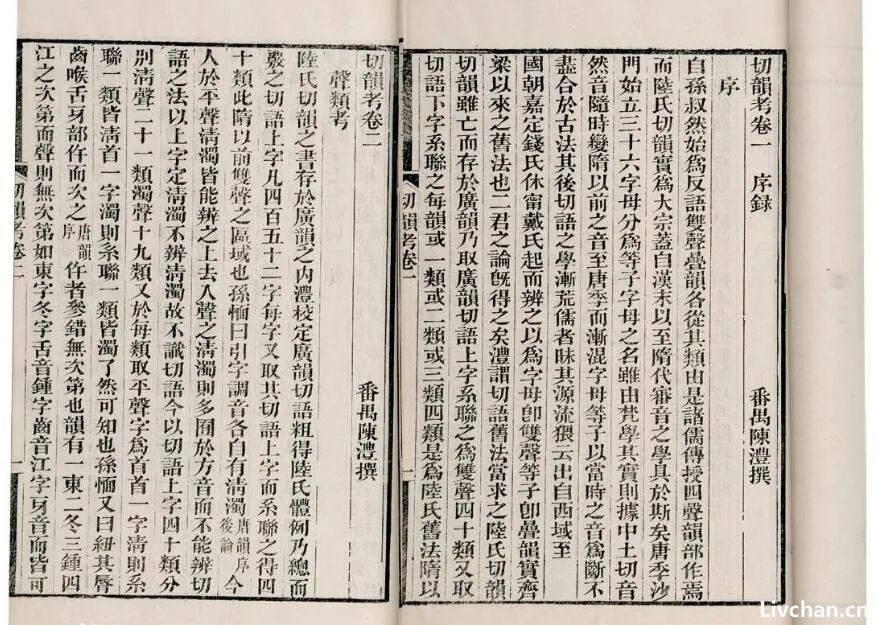 切韻考卷一　序錄
番禺陳澧撰
序
自孫叔然始爲反語雙聲疊韻各從其類由是諸儒傳授四聲韻部作焉
而陸氏切韻實爲大宗蓋自漢末以至隋代審音之學具於斯矣唐季沙
門始立三十六字母分爲等子字母之名雖由梵學其實則據中土切音
然音隨時變隋以前之音至唐季而漸混字母等子以當時之音爲斷不
盡合於古法其後切語之學漸荒儒者昧其源流猥云出自西域至
國朝嘉定錢氏休甯戴氏起而辨之以爲字母卽雙聲等子卽疊韻實齊
梁以來之舊法也二君之論旣得之矣澧謂切語舊法當求之陸氏切韻
切韻雖亡而存於廣韻乃取廣韻切語上字系聯之爲雙聲四十類又取
切語下字系聯之每韻或一類或二類或三類四類是爲陸氏舊法隋以
切韻考卷一
一
切韻考卷二
番禺陳澧撰
聲類考
陸氏切韻之書存於廣韻之內澧校定廣韻切語粗得陸氏體例乃總而
覈之切語上字凡四百五十二字每字又取其切語上字而系聯之得四
十類此隋以前雙聲之區域也孫愐曰引字調音各自有清濁唐韻序後論今
人於平聲清濁皆能辨之上去入聲之清濁則多囿於方音而不能辨切
語之法以上字定清濁不辨清濁故不識切語今以切語上字四十類分
別清聲二十一類濁聲十九類又於每類取平聲字爲首首一字清則系
聯一類皆清首一字濁則系聯一類皆濁了然可知也孫愐又曰紐其脣
齒喉舌牙部仵而次之唐韻序仵者參錯無次第也韻有一東二冬三鍾四
江之次第而聲則無次第如東字冬字舌音鍾字齒音江字牙音而皆可
切韻考卷二
Livchan.cn